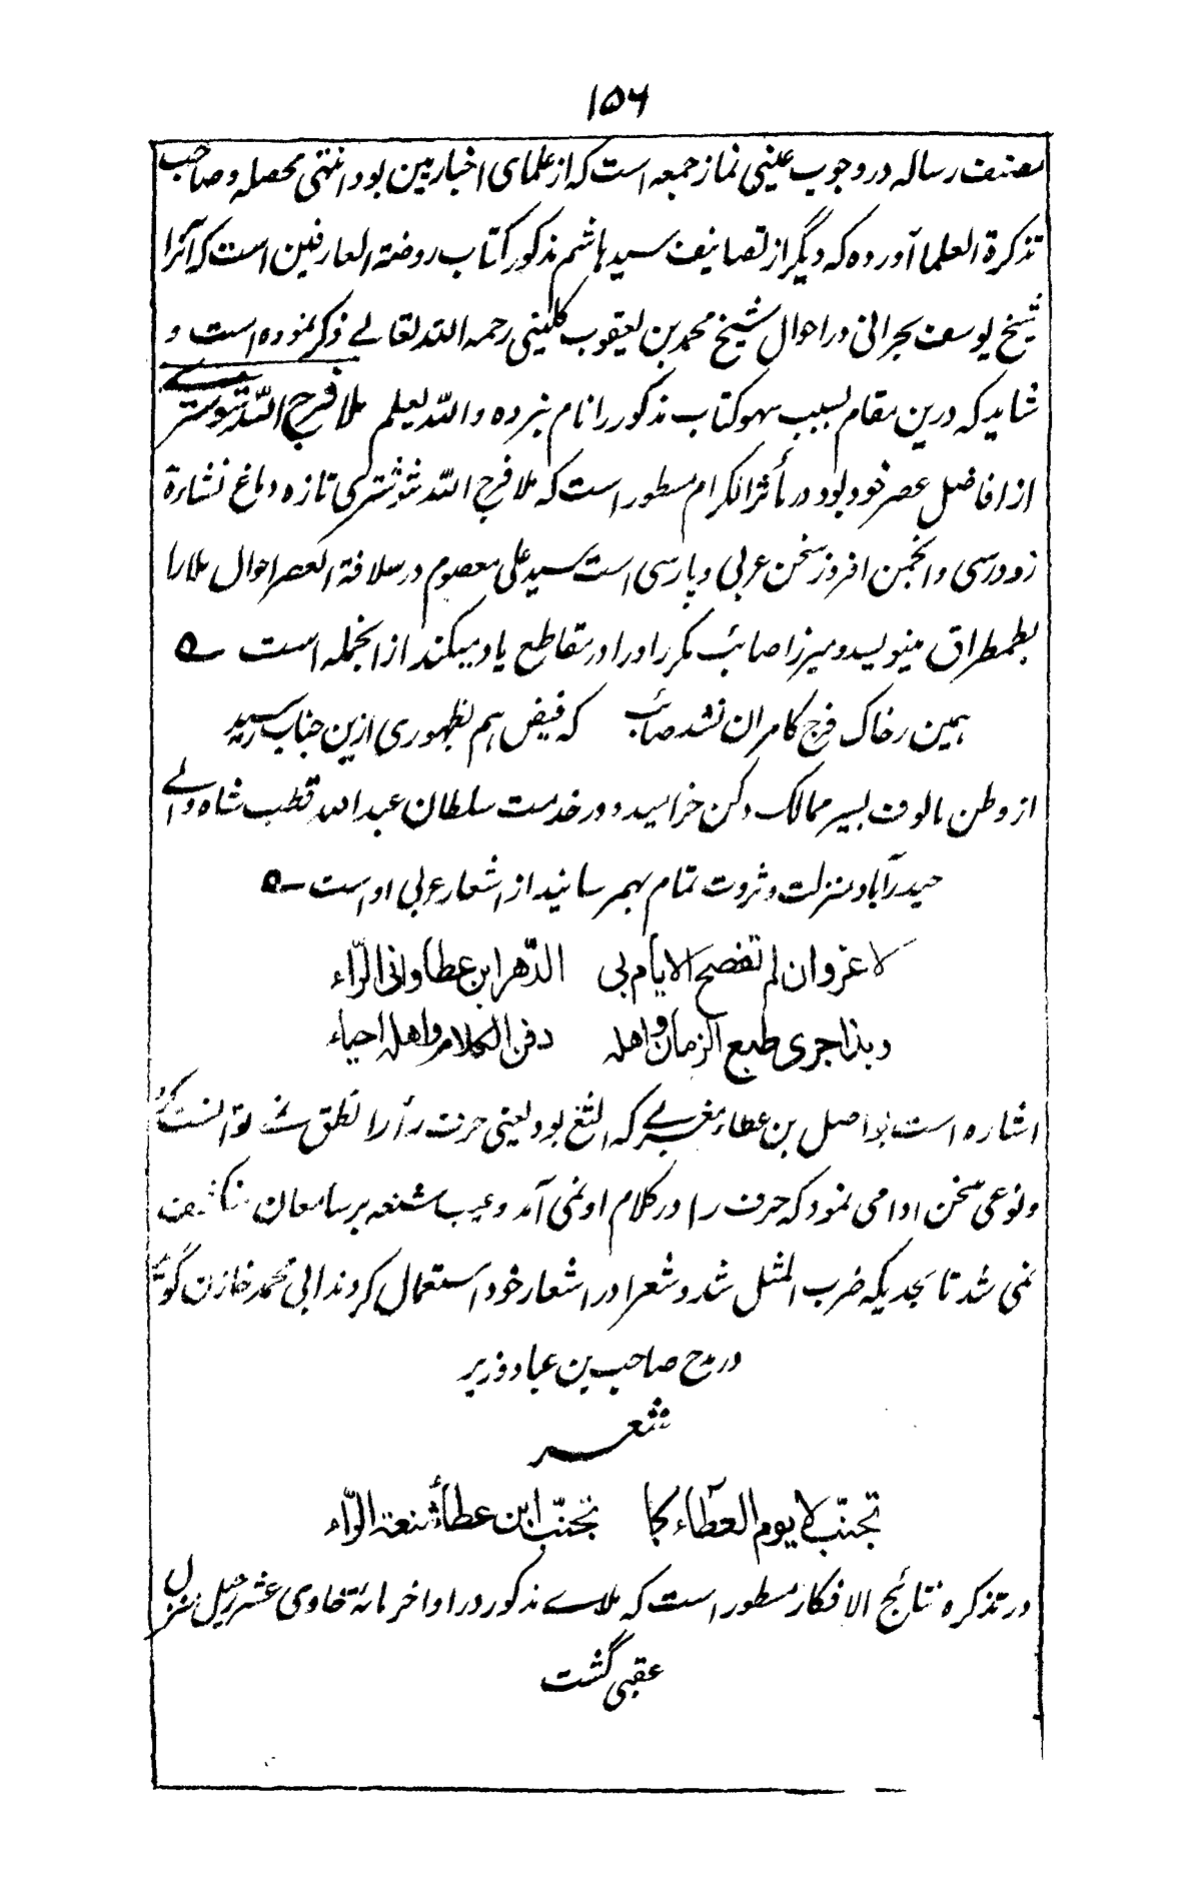 ۱۵۶
مصنف رساله در وجوب عینی نماز جمعه است که از علمای اخبارمین بود انتهی محصله و صاحب
تذکرة العلما آورده که دیگر از تصانیف سید هاشم مذکور کتاب روضة العارفین است که آنرا
شیخ یوسف بحرانی در احوال شیخ محمد بن یعقوب کلینی رحمه الله تعالے ذکر نموده است و
شاید که درین مقام بسبب سهو کتاب مذکور را نام نبرده والله یعلم ملا فرج الله شوسترے
از افاضل عصر خود بود در مأثر الکرام مسطور است که ملا فرج الله شوشتری تازه دماغ نشاءة
زودرسی و انجمن افروز سخن عربی و پارسی است سید علی معصوم در سلافة العصر احوال ملا را
بطمطراق مینویسد و میرزا صائب مکرر او را در مقاطع یاد میکند از انجمله است ؎
همین نه خاک فرج کامران نشد صائب که فیض هم بظهوری ازین جناب رسید
از وطن مالوف بسیر ممالک دکن خرامید و در خدمت سلطان عبدالله قطب شاه والے
حیدرآباد منزلت و ثروت تمام بهم رسانید از اشعار عربی اوست ؎
لا غرو ان لم تفصح الایام بی الدهر ابن عطا وانی الراء
وبذا جری طبع الزمان واهله دفن الکلام واهله احیاء
اشاره است بواصل بن عطاء که الثغ بود یعنی حرف راء را نطق نمے توانست کرد
و نوعی سخن ادا می نمود که حرف را در کلام او نمی آمد و عیب شنعه بر سامعان منکشف
نمی شد تا بحدیکه ضرب المثل شد و شعرا در اشعار خود استعمال کردند ابی محمد خازن گوید
در مدح صاحب بن عباد وزیر
شعر
تجنب لا یوم العطاء کما تجنب ابن عطاء لثغة الراء
در تذکره نتائج الافکار مسطور است که ملاے مذکور در اواخر مائة حاوی عشر رحیل منزل
عقبی گشت